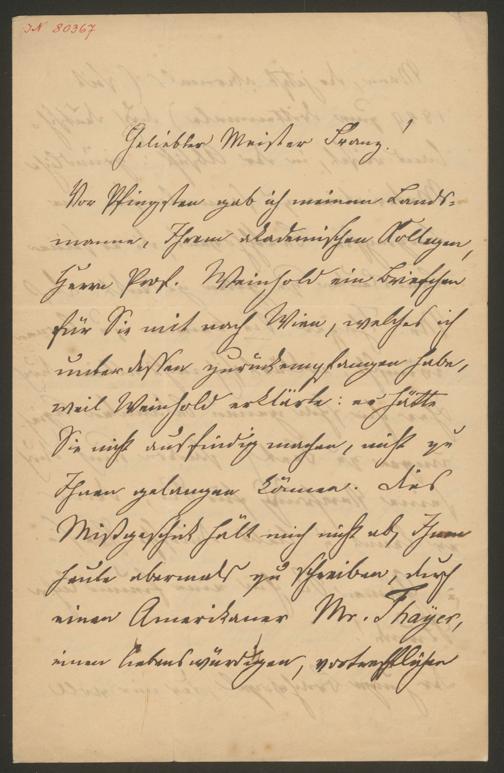 JN 80367
Geliebter Meister Franz!
Vor Pfingsten gab ich meinem Lands-
manne, Ihrem akademischen Kollegen,
Herrn Prof. Weinhold ein Briefchen
für Sie mit nach Wien, welches ich
unterdessen zurückempfangen habe,
weil Weinhold erklärte: er hätte
Sie nicht ausfindig machen, nicht zu
Ihnen gelangen können. Dies
Mißgeschick hält mich nicht ab, Ihnen
heute abermals zu schreiben, durch
einen Amerikaner Mr. Thayer,
einen liebenswürdigen, vortrefflichen